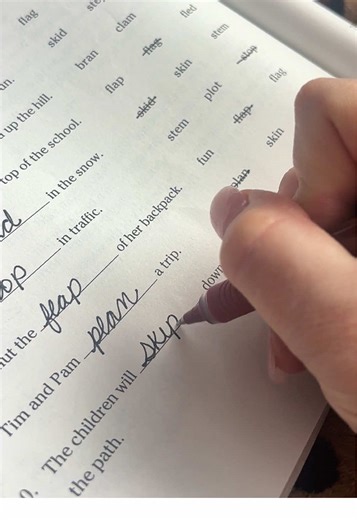 flag
skid
bran clam
up the hill. flap flag fled
top of the school. skid skin stem
in the snow. stem plot stop
op in traffic. fun flap flag
the flap of her backpack. plan skin
Tim and Pam plan a trip.
The children will skip down
the path.